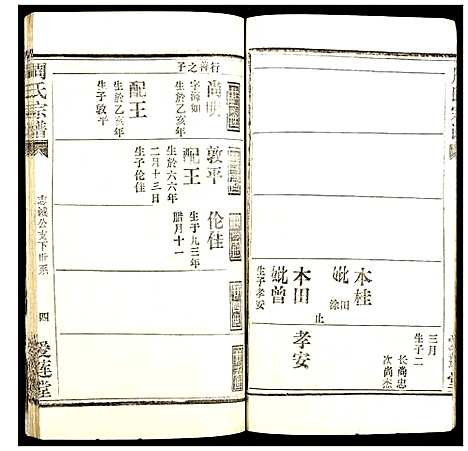 三月
生子二
長尚忠
次尚杰
本桂
妣田
徐
止
木田
妣曾
生子孝安
孝安
行善之子
尚明
字海如
生於乙亥年
配王
生於乙亥年
生子敦平
敦平
生於六六年
配王
二月十三日
生子伦佳
伦佳
生于九三年
腊月十一
周氏宗譜
忠誠公支下世系
四
愛蓮堂